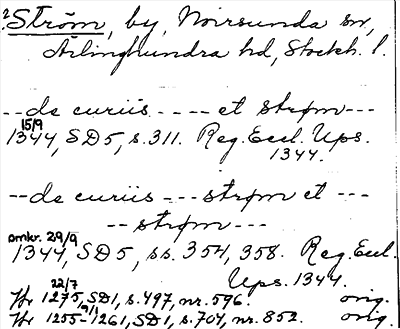 2 Ström, by, Norrsunda sn,
Ärlinghundra hd, Stockh. l.
--de curiis ---- et strøm---
15/9
1344, SD5, s. 311. Reg. Eccl. Ups.
1344.
--de curiis --- strøm et ---
--strøm---
omkr. 29/9
1344, SD5, ss. 354, 358. Reg. Eccl.
Ups. 1344.
22/7
Hr 1275, SD1, s. 497, nr. 596. orig.
Hr 1255-9/1 1261, SD1, s. 704, nr. 852. orig.